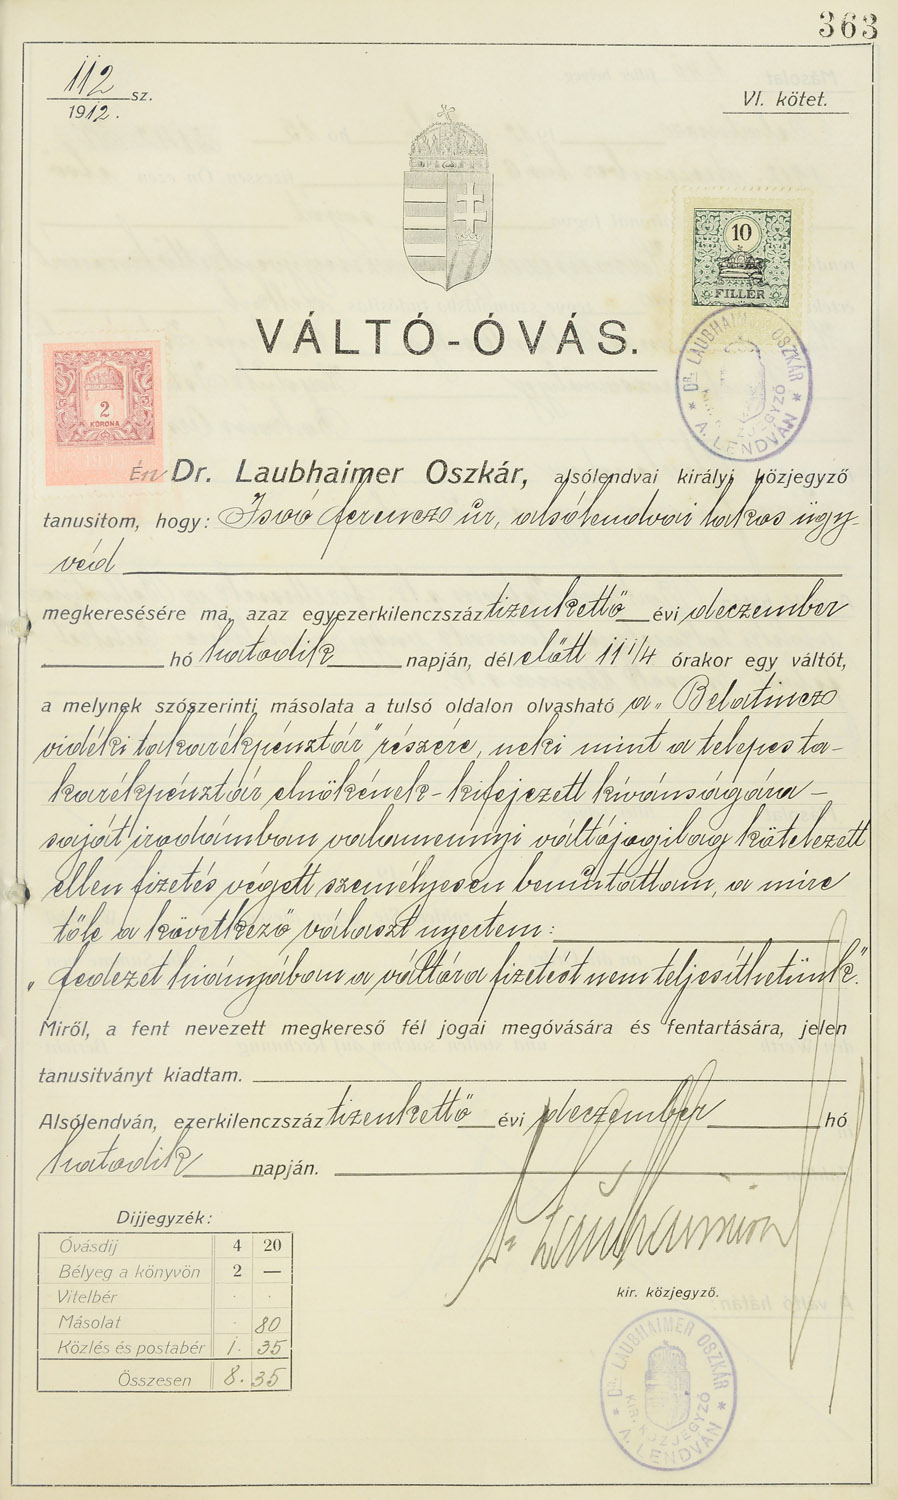 363
112 sz.
1912.
VI. kötet.
10
FILLÉR
VÁLTÓ-ÓVÁS.
DR. LAUBHAIMER OSZKÁR
KIR. KÖZJEGYZŐ
A. LENDVÁN
2
KORONA
Én Dr. Laubhaimer Oszkár, alsólendvai királyi közjegyző
tanusitom, hogy: Isoó Ferencz úr, alsólendvai lakos ügy-
véd
megkeresésére ma, azaz egyezerkilenczszáz tizenkettő évi deczember
hó hatodik napján, dél előtt 11 1/4 órakor egy váltót,
a melynek szószerinti másolata a tulsó oldalon olvasható a „Belatincz
vidéki takarékpénztár" részére, neki mint a telepes ta-
karékpénztár elnökének - kifejezett kívánságára -
saját irodámban valamennyi váltójogilag kötelezett
ellen fizetés végett személyesen bemutattam, a mire
tőle a következő választ nyertem:
„fedezet hiányában a váltóra fizetést nem teljesíthetünk."
Miről, a fent nevezett megkereső fél jogai megóvására és fentartására, jelen
tanusitványt kiadtam.
Alsólendván, ezerkilenczszáz tizenkettő évi deczember hó
hatodik napján.
Dr Laubhaimer
kir. közjegyző.
Dijjegyzék:
Óvásdij 4 20
Bélyeg a könyvön 2 —
Vitelbér . .
Másolat . 80
Közlés és postabér 1. 35
Összesen 8. 35
DR. LAUBHAIMER OSZKÁR
KIR. KÖZJEGYZŐ
A. LENDVÁN